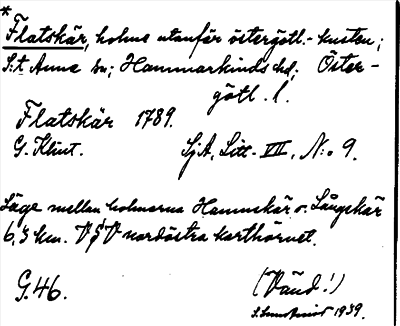 *
Flatskär, holme utanför östergötl.-kusten;
S:t Anna sn; Hammarkinds hd; Öster-
götl. l.
Flatskär 1789.
G. Klint. SjA, Litt. VII, N:o 9.
Läge mellan holmarna Hamnskär o. Långskär
6,3 km. VSV nordöstra karthörnet.
G. 46. (Vänd!)
1939.